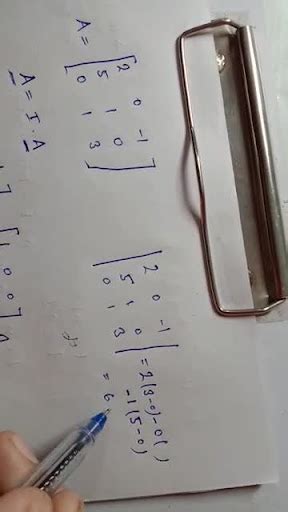 A = [2 0 -1
5 1 0
0 1 3]
|2 0 -1
5 1 0
0 1 3| = 2(3-0)-0( )
-1(5-0)
= 6
A = I · A